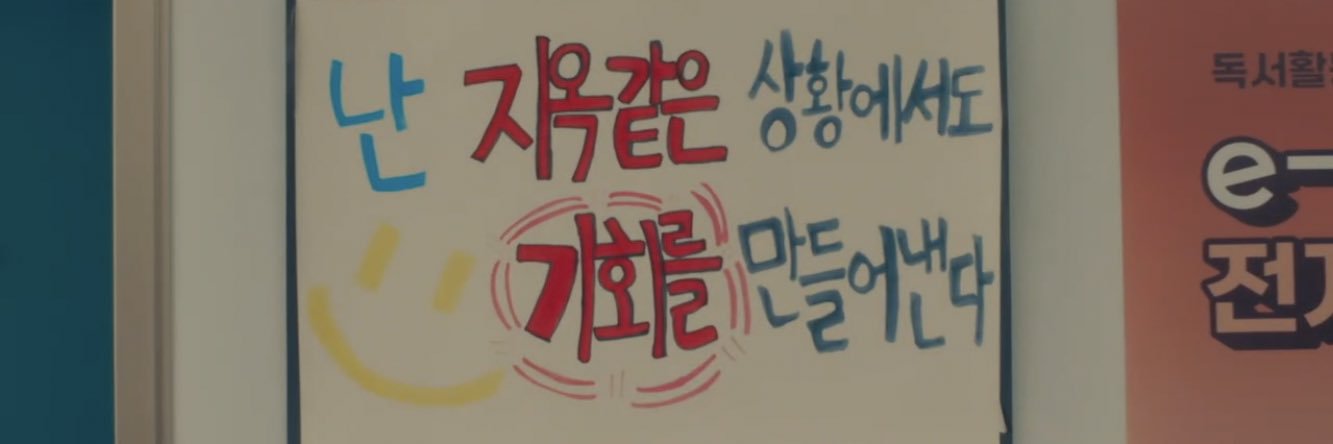 난 지옥같은 상황에서도
기회를 만들어낸다
독서활
e-
전